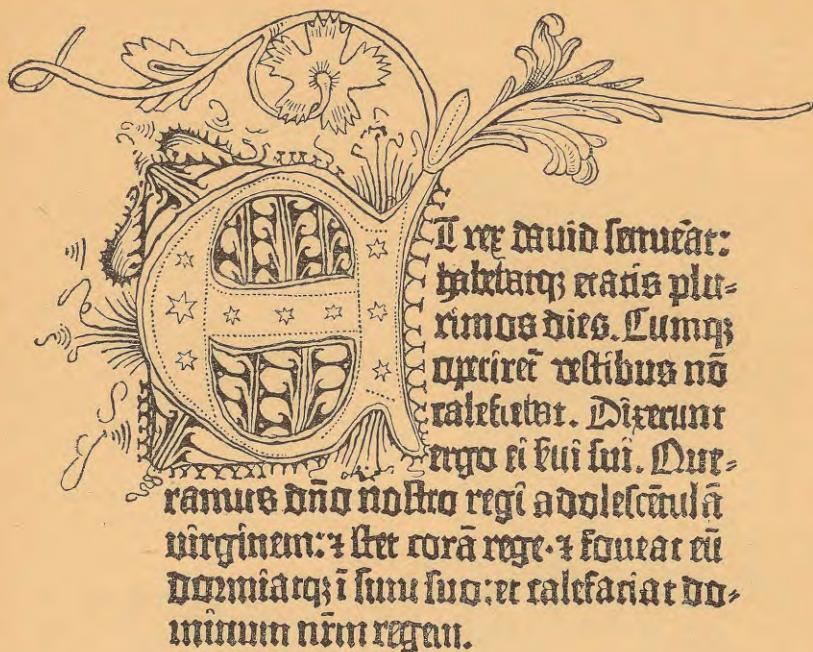 ET rex dauid senuerat:
habebatqꝫ etatis plu-
rimos dies. Cumqꝫ
operiret᷑ vestibus nō
calefiebat. Dixerunt
ergo ei ẜui sui. Que-
ramus dn̄o nostro regi adolescētulā
virginem: ⁊ stet corā rege· ⁊ foueat eū
dormiatqꝫ ī sinu suo: et calefaciat do-
minum nr̄m regem.